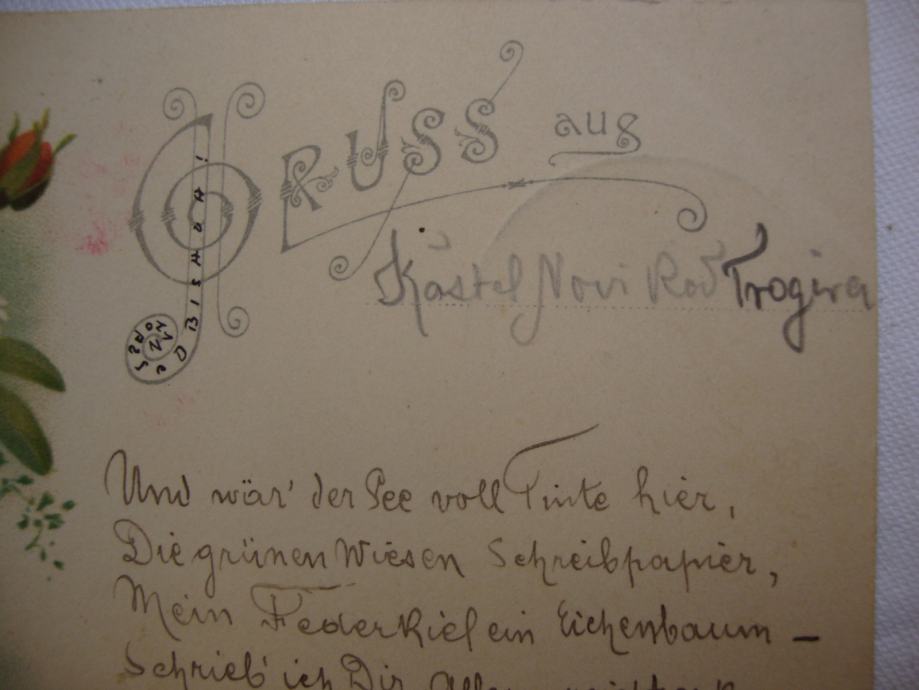 GRUSS aus
Kaštel Novi Kod Trogira
Und wär' der See voll Tinte hier,
Die grünen Wiesen Schreibpapier,
Mein Federkiel ein Eichenbaum –
Schrieb' ich Dir